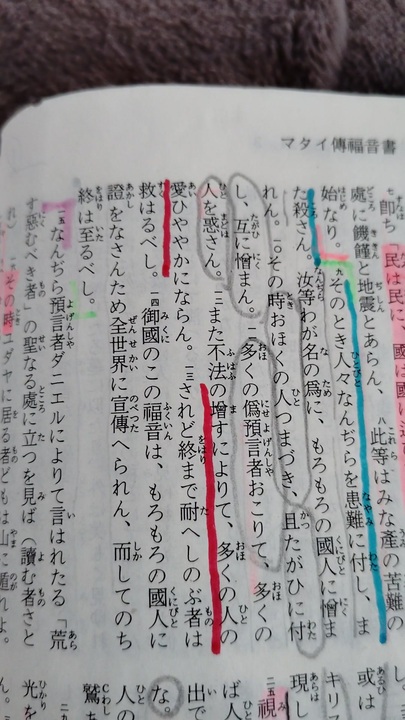 マタイ傳福音書
七 即ち「民は民に、國は國に逆
處に饑饉と地震とあらん、八 此等はみな產の苦難の
始なり。九 そのとき人々なんぢらを患難に付し、ま
た殺さん。汝等わが名の爲に、もろもろの國人に憎ま
れん。一〇 その時おほくの人つまづき、且たがひに付
し、互に憎まん。一一 多くの僞預言者おこりて、多くの
人を惑さん。一二 また不法の增すによりて、多くの人の
愛ひややかにならん。一三 されど終まで耐へしのぶ者は
救はるべし。一四 御國のこの福音は、もろもろの國人に
證をなさんため全世界に宣傳へられん、而してのち
終は至るべし。
一五 なんぢら預言者ダニエルによりて言はれたる「荒
す惡むべき者」の聖なる處に立つを見ば（讀む者さと
その時ユダヤに居る者どもは山に遁れよ。
或は
キリ
現し
二五 視
ば人
出で
な。
人の
鷲
光を
ん。